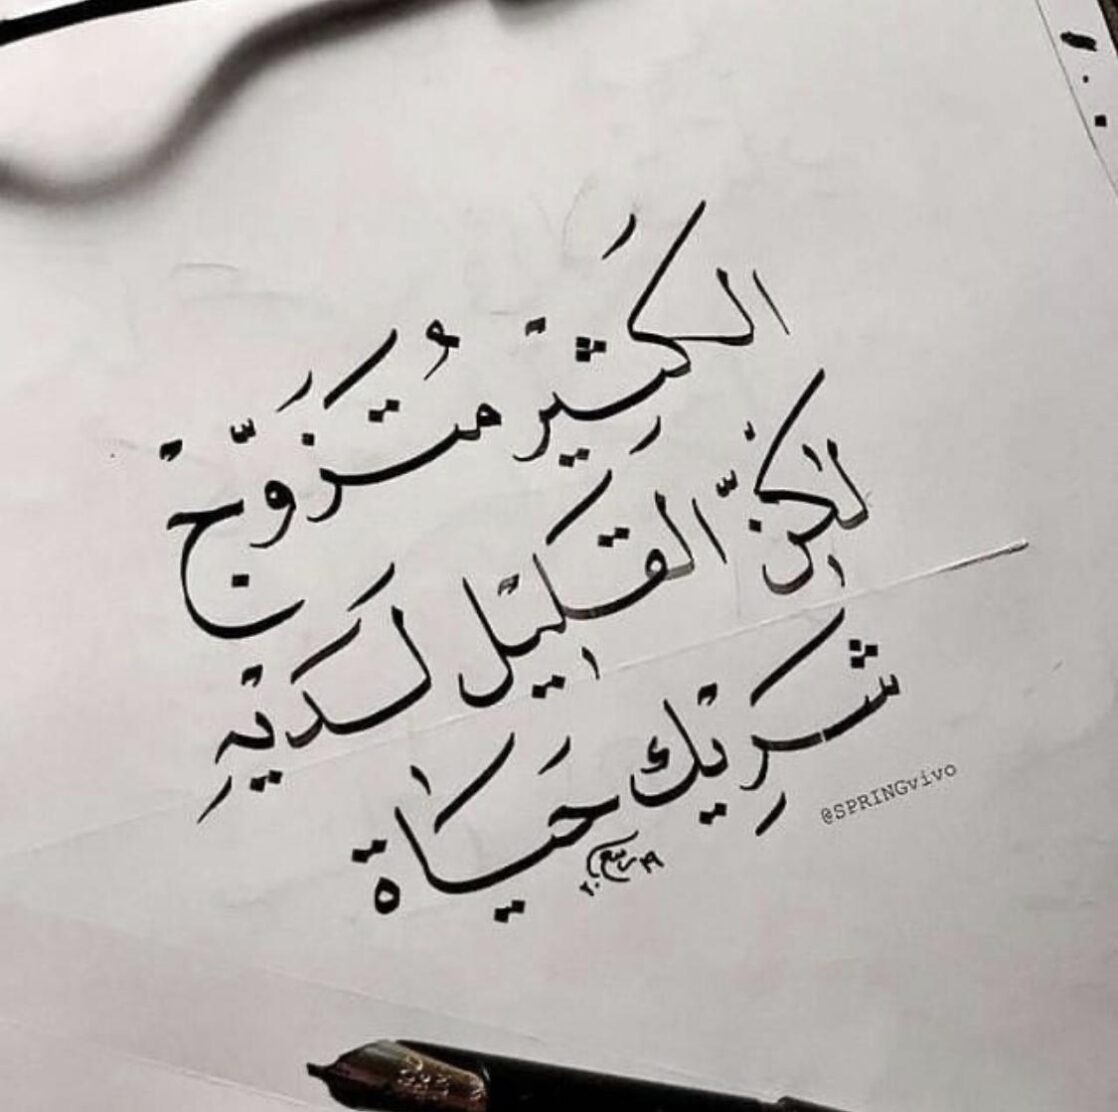 الكَثيْر مُتَزَوّجْ
لٰكنّ القَليْل لَديْهِ
شَرِيْك حَيَاة
@SPRINGvivo